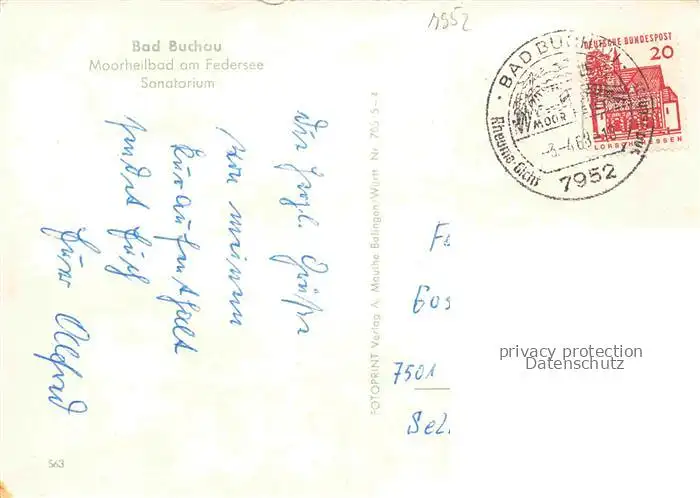 1952
Bad Buchau
Moorheilbad am Federsee
Sanatorium
Die herzl. Grüße
von meinem
Kuraufenthalt
sendet Euch
Euer Alfred
563
FOTOPRINT Verlag A. Mauthe Balingen/Württ. Nr. 765 5-4
BAD BUCH
MOOR
Rheuma-Gicht
-3.-4.68-18
7952
DEUTSCHE BUNDESPOST
20
LORSCH HESSEN
7501
privacy protection
Datenschutz